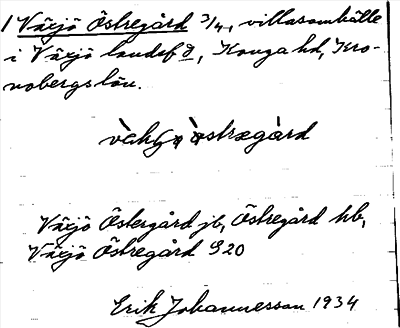 1 Växjö Östregård 3/4, villasamhälle
i Växjö landsf d, Konga hd, Kro-
nobergs län.
Växjö Östergård jb, Östregård hb,
Växjö Östregård S20
Erik Johannesson 1934